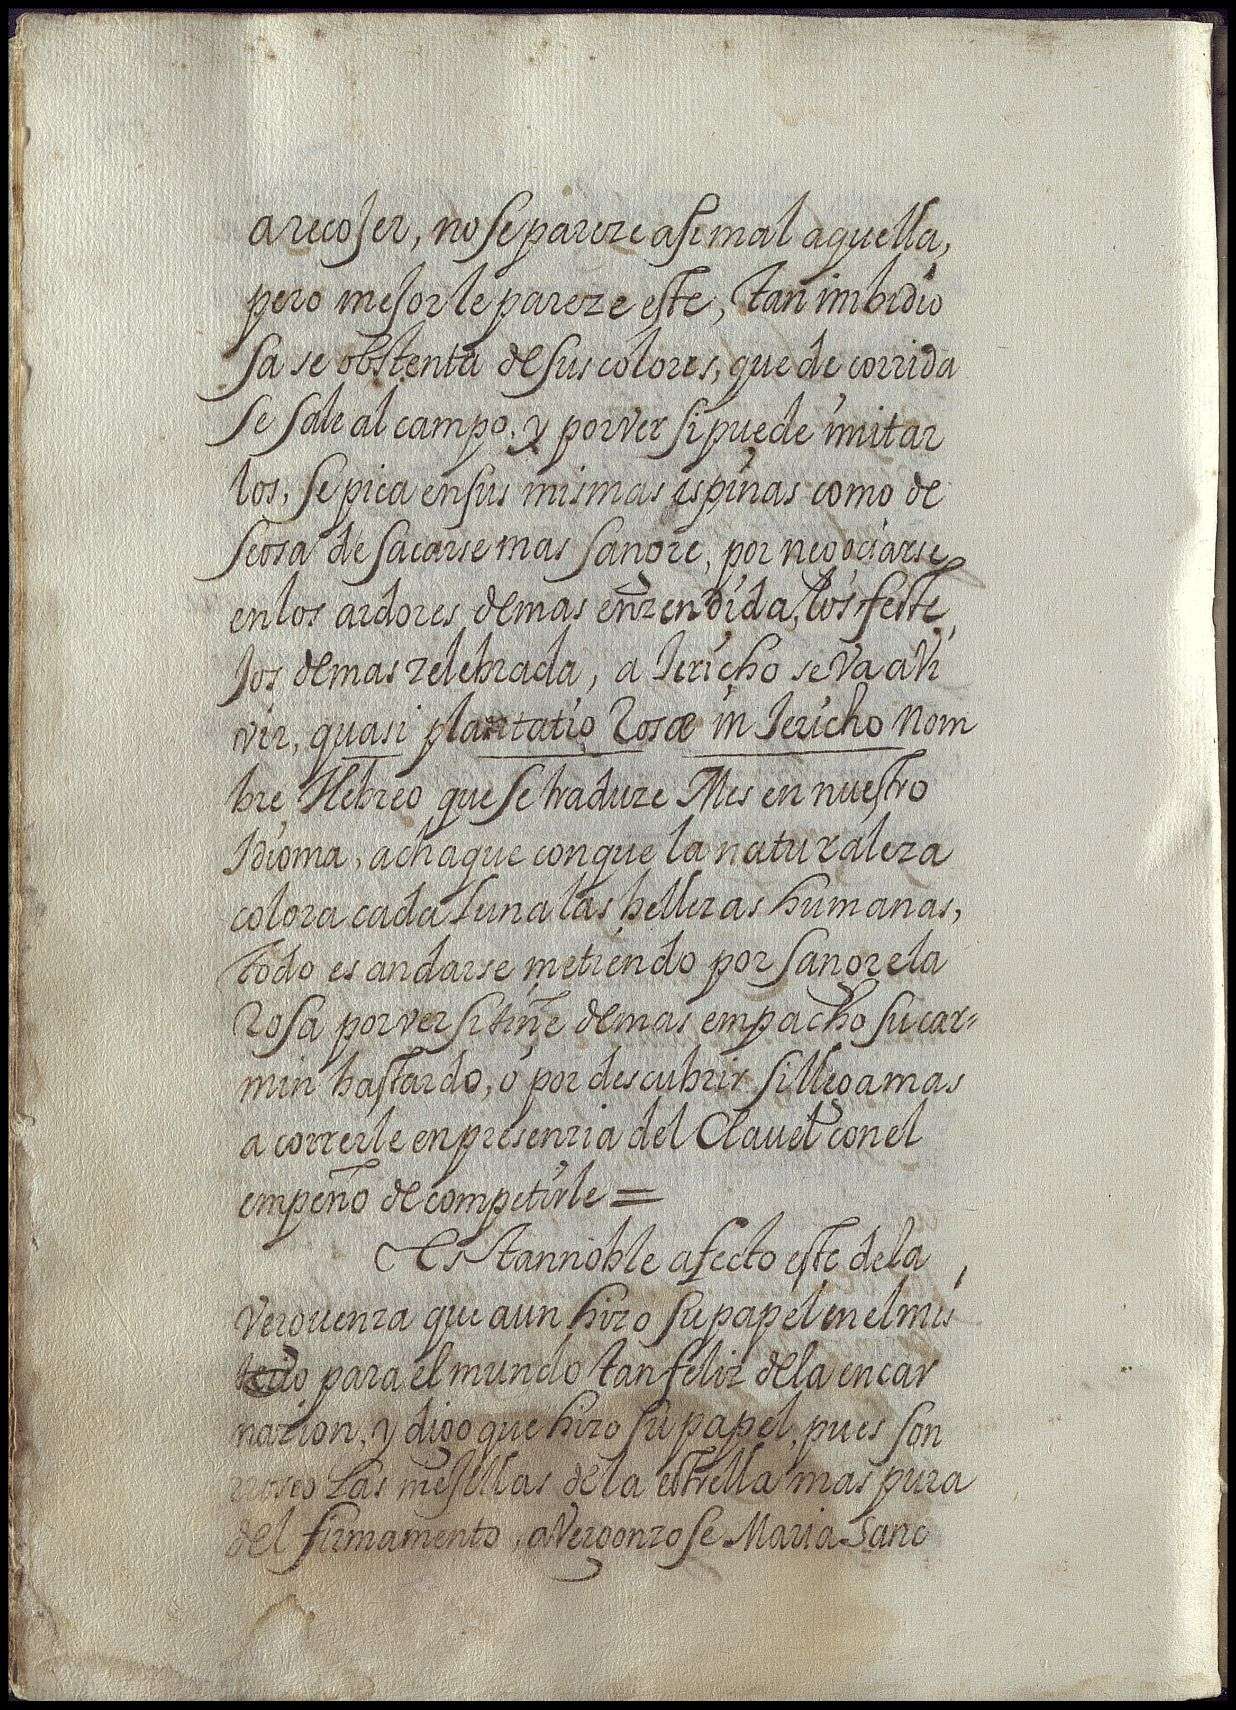 a recojer, no se pareze asi mal aquella,
pero mejor le pareze este, tan imbidio
sa se obstenta de sus colores, que de corrida
se sale al campo, y por ver si puede imitar
los, se pica en sus mismas espinas como de
seosa de sacarse mas sangre, por negociarse
en los ardores de mas enzendida, los feste
jos de mas zelebrada, a Jericho se va a vi
vir, quasi plantatio Rosæ in Jericho Nom
bre Hebreo que se traduze Mes en nuestro
Idioma, achaque con que la naturaleza
colora cada Luna las bellezas humanas,
todo es andarse metiendo por sangre la
Rosa por ver si tiñe de mas empacho su car=
min bastardo, o por descubrir si llega mas
a correrle en presenzia del Clavel con el
empeño de competirle =
Es tan noble afecto este de la
verguenza que aun hizo su papel en el mis
terio para el mundo tan feliz de la encar
nazion, y digo que hizo su papel, pues son
roseo las mejillas de la estrella mas pura
del firmamento, avergonzose Maria Sanc